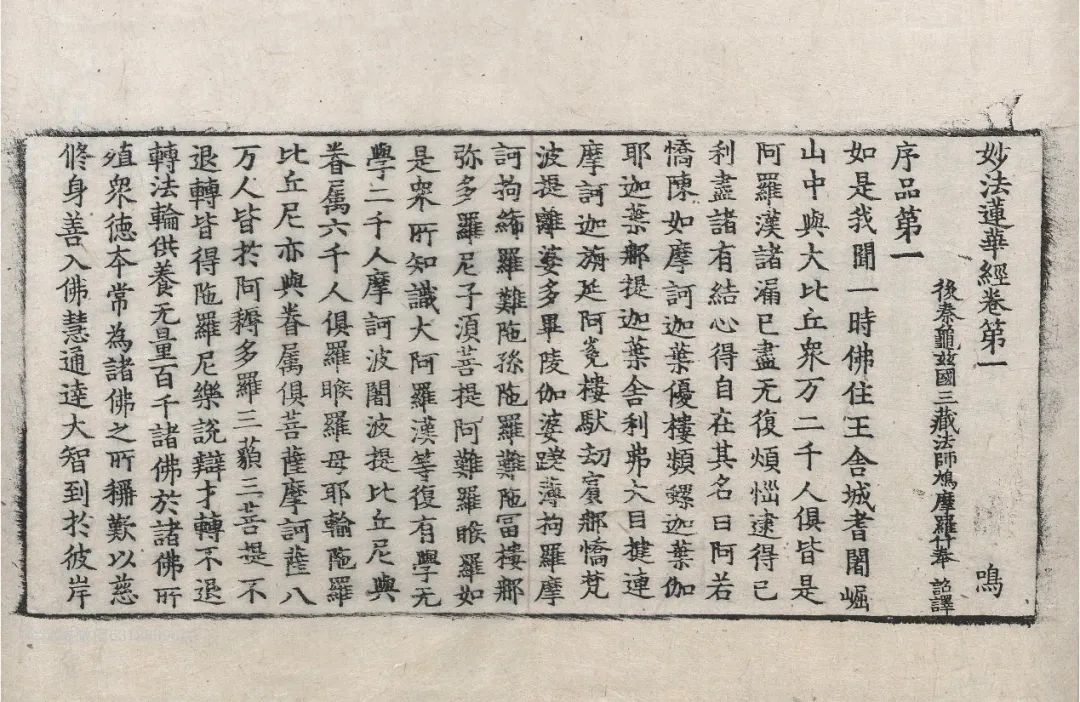 妙法蓮華經卷第一 鳴
後秦龜兹國三藏法師鳩摩羅什奉 詔譯
序品第一
如是我聞一時佛住王舍城耆闍崛
山中與大比丘衆万二千人俱皆是
阿羅漢諸漏已盡无復煩惱逮得己
利盡諸有結心得自在其名曰阿若
憍陳如摩訶迦葉優樓頻螺迦葉伽
耶迦葉那提迦葉舍利弗大目揵連
摩訶迦旃延阿㝹樓馱劫賓那憍梵
波提離婆多畢陵伽婆蹉薄拘羅摩
訶拘絺羅難陁孫陁羅難陁冨樓那
弥多羅尼子湏菩提阿難羅睺羅如
是衆所知識大阿羅漢等復有學无
學二千人摩訶波闍波提比丘尼與
眷属六千人俱羅睺羅母耶輸陁羅
比丘尼亦與眷属俱菩薩摩訶薩八
万人皆於阿耨多羅三藐三菩提不
退轉皆得陁羅尼樂說辯才轉不退
轉法輪供養无量百千諸佛於諸佛所
殖衆徳本常為諸佛之所稱歎以慈
脩身善入佛慧通達大智到於彼岸